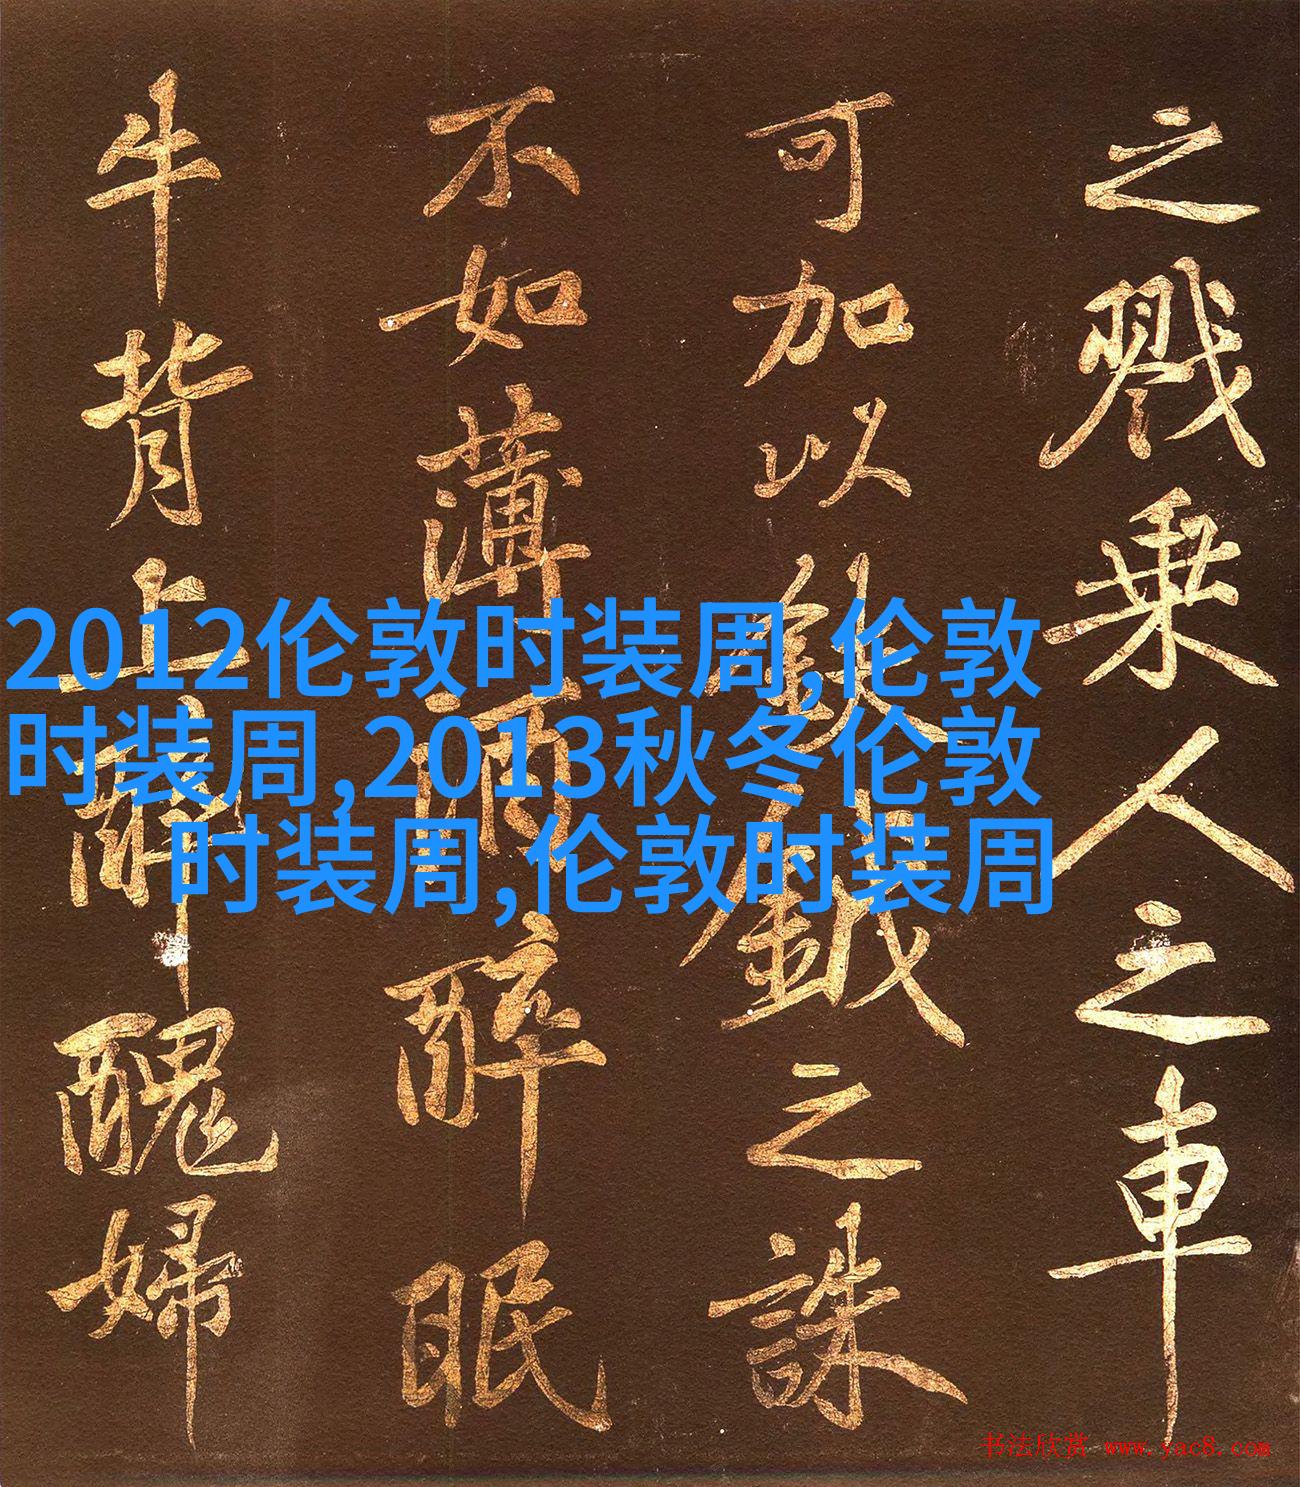 之戮乘人之車
可加以鉞之誅
不如薄酒醉眠
牛背上醉醜婦
2012伦敦时装周,伦敦
时装周,2013秋冬伦敦
时装周,伦敦时装周
书法欣赏 www.yac8.com